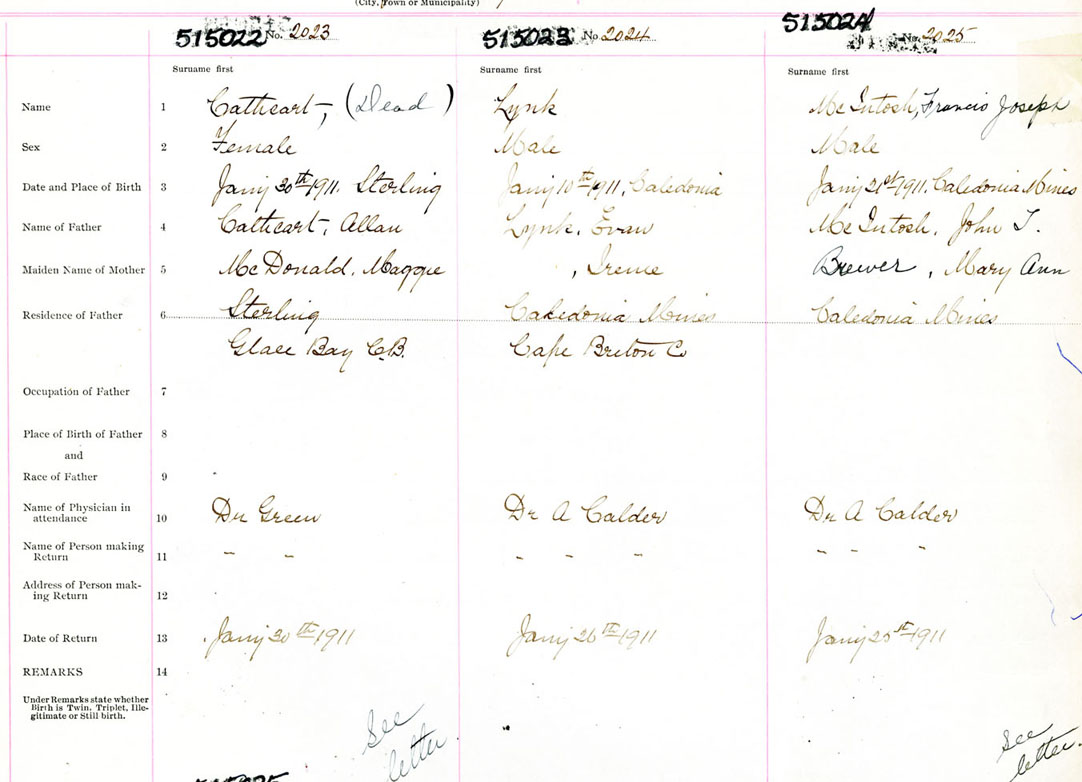 (City, Town or Municipality)
515022 No. 2023 515023 No 2024 515024 No. 2025
Surname first Surname first Surname first
Name 1 Cathcart, (Dead) Lynk McIntosh, Francis Joseph
Sex 2 Female Male Male
Date and Place of Birth 3 Jany 30th 1911. Sterling Jany 10th 1911, Caledonia Jany 21st 1911, Caledonia Mines
Name of Father 4 Cathcart, Allan Lynk, Evan McIntosh, John J.
Maiden Name of Mother 5 McDonald, Maggie , Irene Brewer, Mary Ann
Residence of Father 6 Sterling Caledonia Mines Caledonia Mines
Glace Bay C.B. Cape Breton Co
Occupation of Father 7
Place of Birth of Father 8
and
Race of Father 9
Name of Physician in
attendance 10 Dr Green Dr A Calder Dr A Calder
Name of Person making
Return 11 - - - - - - - -
Address of Person mak-
ing Return 12
Date of Return 13 Jany 30th 1911 Jany 26th 1911 Jany 25st 1911
REMARKS 14
Under Remarks state whether
Birth is Twin, Triplet, Ille-
gitimate or Still birth.
See
letter
See
letter.